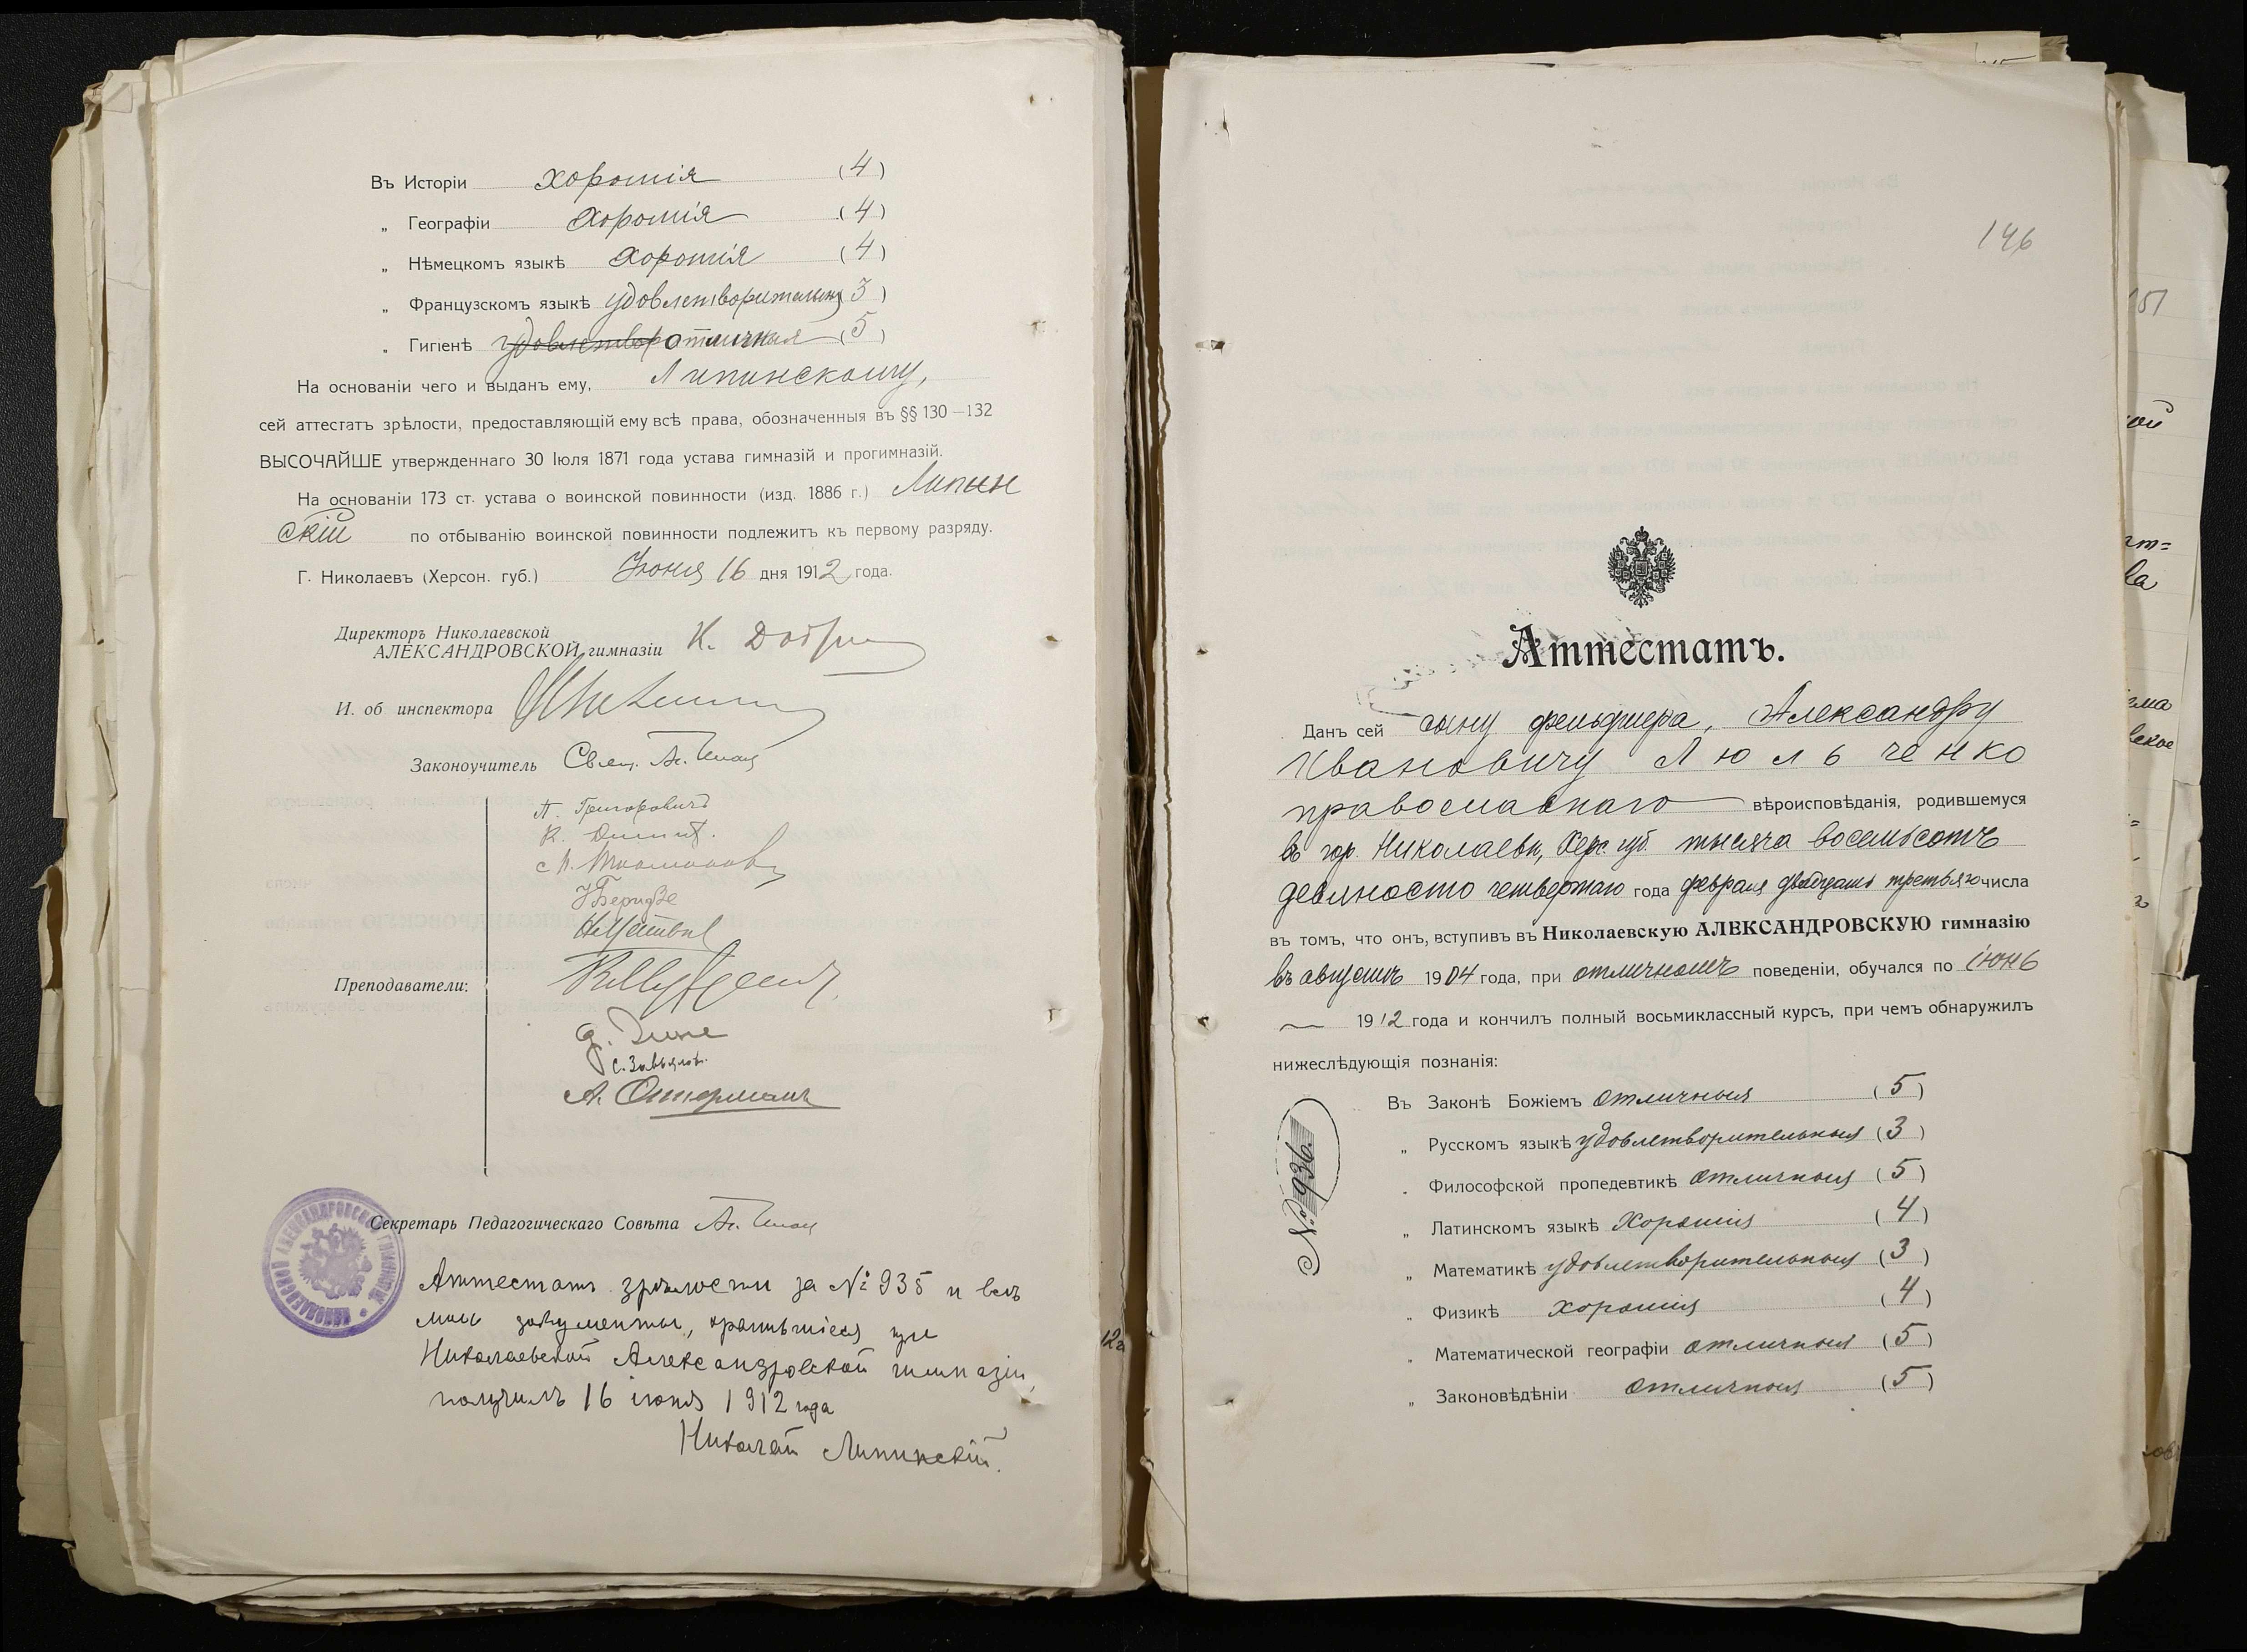 Въ Исторіи хорошія (4)
„ Географіи хорошія (4)
„ Нѣмецкомъ языкѣ хорошія (4)
„ Французскомъ языкѣ удовлетворительныя 3)
„ Гигіенѣ удовлетвор отличныя (5)
На основаніи чего и выданъ ему, Липинскому,
сей аттестатъ зрѣлости, предоставляющій ему всѣ права, обозначенныя въ §§ 130—132
ВЫСОЧАЙШЕ утвержденнаго 30 Іюля 1871 года устава гимназій и прогимназій.
На основаніи 173 ст. устава о воинской повинности (изд. 1886 г.) Липин
скій по отбыванію воинской повинности подлежитъ къ первому разряду.
Г. Николаевъ (Херсон. губ.) Іюня 16 дня 1912 года.
Директоръ Николаевской
АЛЕКСАНДРОВСКОЙ гимназіи К.
И. об инспектора
Законоучитель Свящ. Ал.
П. Григоровичъ
К.
Преподаватели:
С. Завьялов.
А. Остерманъ
Секретарь Педагогическаго Совѣта Ал.
Аттестатъ зрѣлости за № 935 и всѣ
мои документы, хранившіеся при
Николаевской Александровской гимназіи,
получилъ 16 іюня 1912 года
Николай Липинскій.
146
Аттестатъ.
Данъ сей сыну фельдшера, Александру
Ивановичу Люльченко
православнаго вѣроисповѣданія, родившемуся
въ гор. Николаевѣ, Херс. губ. тысяча восемьсотъ
девяносто четвертаго года февраля двадцать третьяго числа
въ томъ, что онъ, вступивъ въ Николаевскую АЛЕКСАНДРОВСКУЮ гимназію
въ августѣ 1904 года, при отличномъ поведеніи, обучался по іюнь
1912 года и кончилъ полный восьмиклассный курсъ, при чемъ обнаружилъ
нижеслѣдующія познанія:
Въ Законѣ Божіемъ отличныя (5)
„ Русскомъ языкѣ удовлетворительныя (3)
„ Философской пропедевтикѣ отличныя (5)
„ Латинскомъ языкѣ хорошія (4)
„ Математикѣ удовлетворительныя (3)
„ Физикѣ хорошія (4)
„ Математической географіи отличныя (5)
„ Законовѣдѣніи отличныя (5)
№ 936.